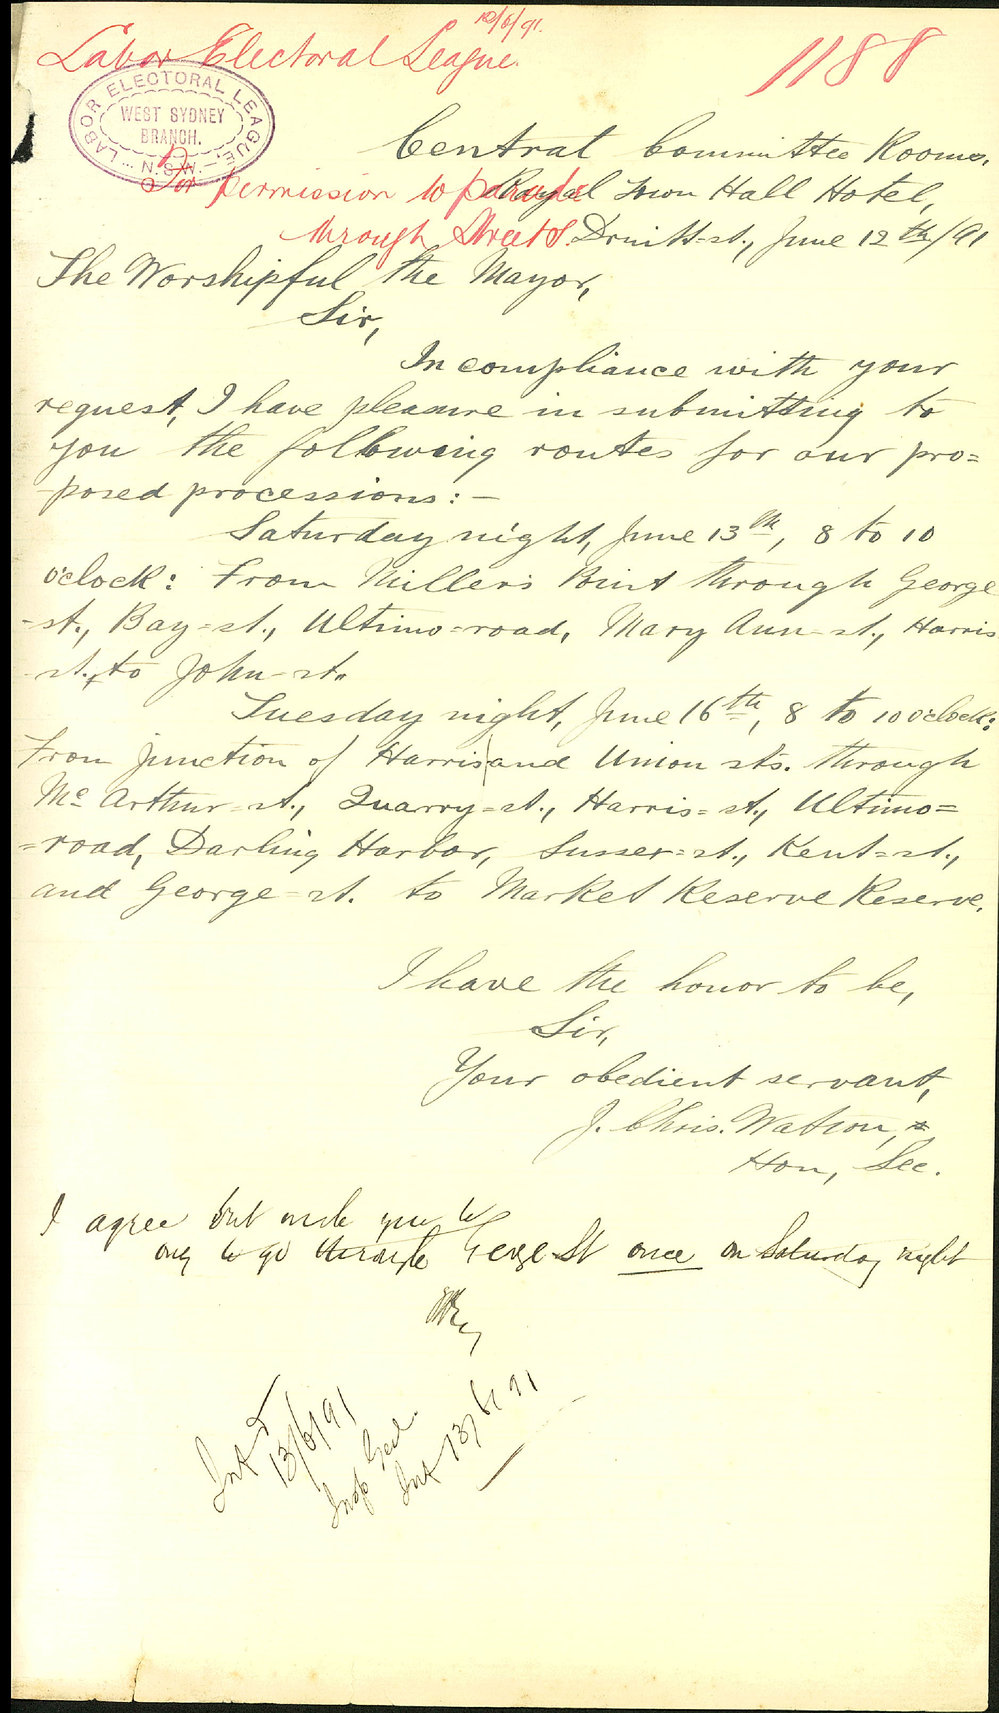 10/6/91.
Labor Electoral League.
1188
LABOR ELECTORAL LEAGUE,
WEST SYDNEY
BRANCH.
N.S.W.
Central Committee Rooms,
For permission to parade
Royal Town Hall Hotel,
through Streets
Druitt-st., June 12th/91
The Worshipful the Mayor,
Sir,
In compliance with your
request, I have pleasure in submitting to
you the following routes for our pro=
-posed processions: -
Saturday night, June 13th, 8 to 10
o'clock: From Miller's Point through George
-st., Bay-st., Ultimo-road, Mary Ann-st., Harris
-st., to John-st.
Tuesday night, June 16th, 8 to 10 o'clock:
From junction of Harris and Union sts. through
Mc Arthur-st., Quarry-st., Harris-st., Ultimo=
=road, Darling Harbor, Sussex-st., Kent-st.,
and George-st. to Market Reserve Reserve.
I have the honor to be,
Sir,
Your obedient servant,
J. Chris. Watson,
Hon, Sec.
I agree but you to
only to go through George St once on Saturday night
13/6/91
Insp Genl.
13/6/91